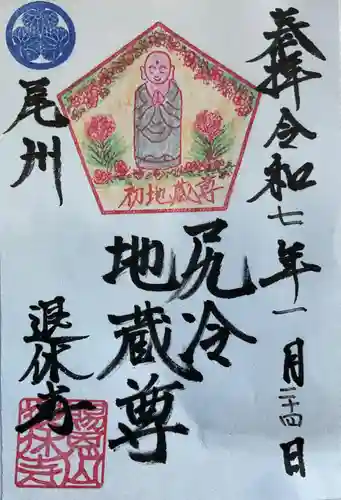 奉拝令和七年一月二十四日
尻冷
地蔵尊
初地蔵尊
尾州
退休寺